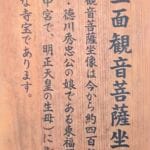 一面観音菩薩坐
観音菩薩坐像は今から約四百
・徳川秀忠公の娘である東福
中宮で、明正天皇の生母)に
な寺宝であります。